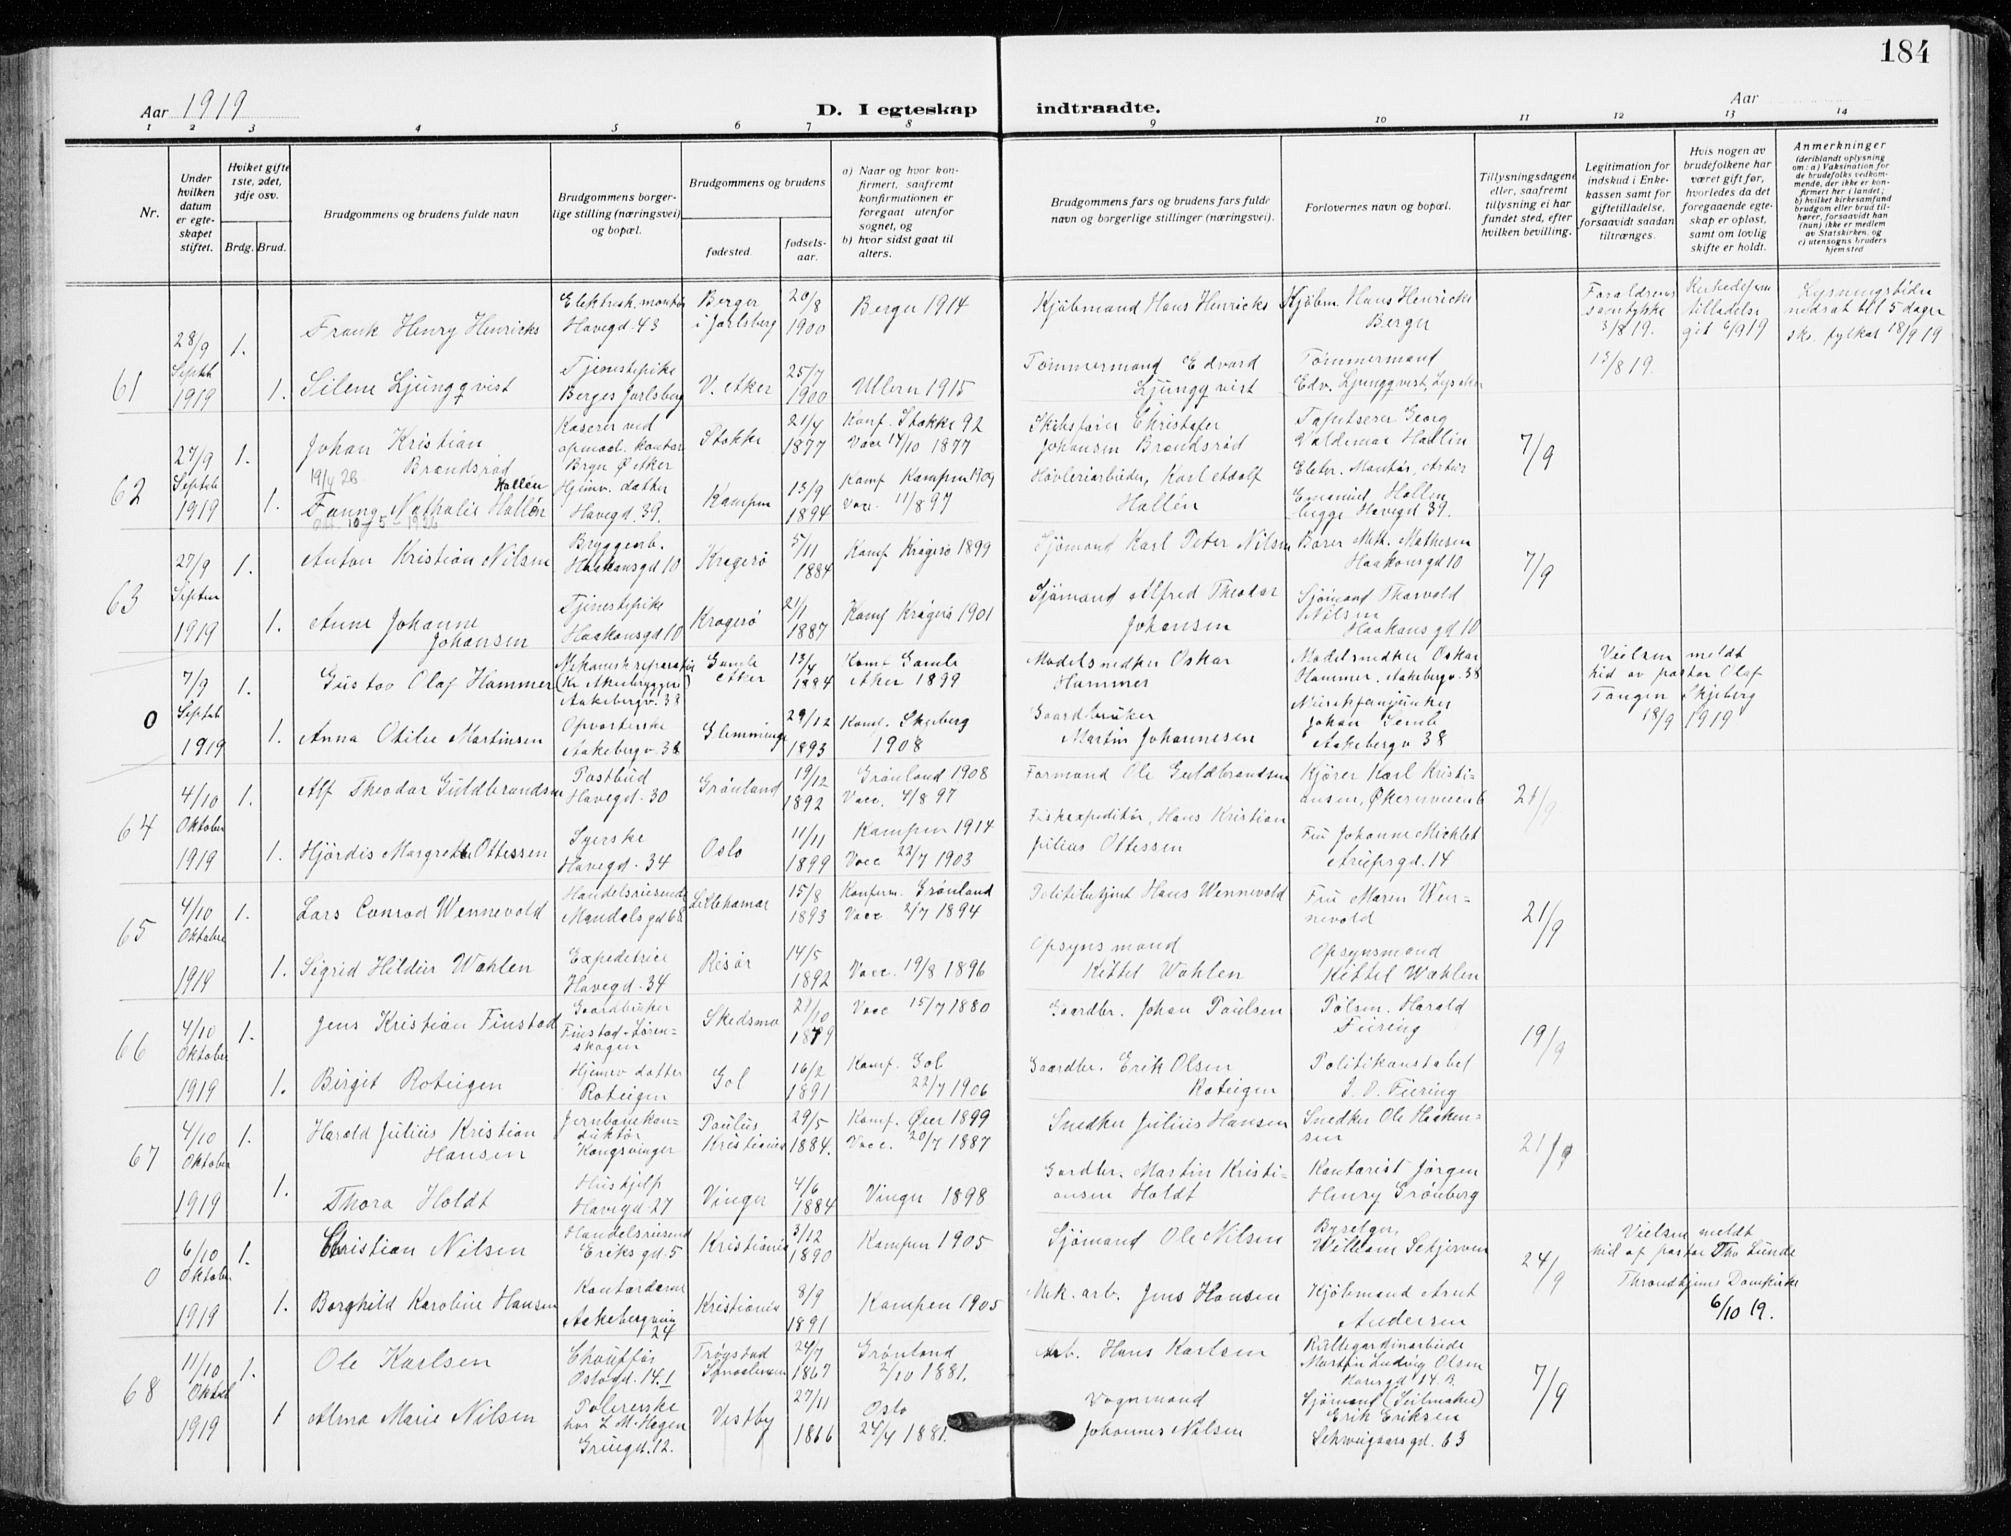 184
Aar 1919
D. I egteskap indtraadte.
Aar
1 2 3 4 5 6 7 8 9 10 11 12 13 14
Nr.
Under hvilken datum er egteskapet stiftet.
Hvilket gifte 1ste, 2det, 3dje osv.
Brdg. Brud.
Brudgommens og brudens fulde navn
Brudgommens borgerlige stilling (næringsvei) og bopæl.
Brudgommens og brudens
fødested.
fødselsaar.
a) Naar og hvor konfirmert, saafremt konfirmationen er foregaat utenfor sognet, og
b) hvor sidst gaat til alters.
Brudgommens fars og brudens fars fulde navn og borgerlige stillinger (næringsvei).
Forlovernes navn og bopæl.
Tillysningsdagene eller, saafremt tillysning ei har fundet sted, efter hvilken bevilling.
Legitimation for indskud i Enkekassen samt for giftetilladelse, forsaavidt saadan tiltrænges.
Hvis nogen av brudefolkene har været gift før, hvorledes da det foregaaende egteskap er opløst, samt om lovlig skifte er holdt.
Anmerkninger
(deriblandt oplysning om: a) Vaksination for de brudefolks vedkommende, der ikke er konfirmert her i landet; b) hvilket kirkesamfund brudgom eller brud tilhører, forsaavidt han (hun) ikke er medlem av Statskirken, og c) utensogns bruders hjemsted
61
28/9 Septbr 1919
1.
Frank Henry Henricks
Elektrisk. montør Havegd. 43
Berger i Jarlsberg
20/8 1900
Berger 1914
Kjøbmand Hans Henricks
Kjøbm. Hans Henricks Berger
Foraldrens samtykke 3/8 19.
Kirkedep tilladelse git 6/9 19
Lysningstiden nedsat til 5 dager 18/9 19
1.
Silene Ljungqvist
Tjenestepike Berger Jarlsberg
V. Aker
25/7 1900
Ullern 1915
Tømmermand Edvard Ljungqvist
Tømmermand Edv. Ljungqvist, Lysaker
15/8 19.
62
27/9 Septeb 1919
1.
Johan Kristian Brandsrød
19/4 26
Kaserer ved opmaal. kontor Bryn Ø. Aker
Stokke
21/4 1877
Konf. Stokke 92
Vacc 17/10 1877
Skibsfører Christofer Johansen Brandsrød
Tapetserer Georg Valdemar Hallin
7/9
1.
Fanny Nathalie Hallén
Hallén
10/5 - 1926
Hjemv. datter Havegd. 39.
Kampen
13/9 1894
Konf Kampen 1909
Vacc. 11/8 97
Høvleriarbeider, Karl Adolf Hallén
Elektr. Montør, Emanuel Hallen begge Havegd 39.
63
27/9 Septem 1919
1.
Anton Kristian Nilsen
Bryggearb. Haakonsgd 10
Kragerø
5/11 1884
Konf Kragerø 1899
Sjømand Karl Peter Nilsen
Borer Mth. Mathesen Haakonsgd 10
7/9
1.
Anne Johanne Johansen
Tjenestepike Haakonsgd 10
Kragerø
21/1 1887
Konf Kragerø 1901
Sjømand Alfred Theodor Johansen
Sjømand Thorvald Nilsen Haakonsgd 10
0
7/9 Septeb 1919
1.
Gustav Olaf Hammer
Mekanisk reparatør (Kr. Akebryggeri) Aakebergv. 38
Gamle Aker
13/4 1884
Konf Gamle Aker 1899
Modelsnedker Oskar Hammer
Modelsnedker Oskar Hammer. Aakebergv. 38
Vielsen meldt hid av pastor Olaf Tangen Skjeberg 18/9 1919
1.
Anna Otilie Martinsen
Opvarterske Aakebergv. 38
Glemminge
29/12 1893
Konf. Skjeberg 1908
Gaardbruker Martin Johannesen
Johan Aakebergv 38
64
4/10 Oktober 1919
1.
Alf Theodor Guldbrandsen
Postbud Havegd. 30
Grønland
19/12 1892
Grønland 1908
Vacc. 4/8 97
Formand Ole Guldbrandsen
Kjører Karl Kristiansen, Økernveien 6
21/9
1.
Hjørdis Margrethe Ottessen
Syerske Havegd. 34
Oslo
11/11 1899
Kampen 1914
Vacc 22/7 1903
Fiskexpeditør, Hans Kristian Julius Ottessen
Fru Johanne Michlet Arupsgd. 14
65
4/10 Oktober 1919
1.
Lars Conrad Wennevold
Handelsreisende Mandalsgd 68
Lillehamar
15/8 1893
Konferm. Grønland
Vacc 2/7 1894
Politibetjent Hans Wennevold
Fru Maren Wennevold
21/9
1.
Sigrid Hildur Wahlen
Expeditrice Havegd. 34
Risør
14/5 1892
Vacc. 19/8 1896
Opsynsmand Kittel Wahlen
Opsynsmand Kittel Wahlen
66
4/10 Oktober 1919
1.
Jens Kristian Finstad
Gaardbruker Finstad - Lørenskogen
Skedsmo
21/10 1879
Vacc 15/7 1880
Gaardbr. Johan Paulsen
Pølsem. Harald Fiering
19/9
1.
Birgit Roteigen
Hjemv datter Roteigen
Gol
16/2 1891
Konf. Gol 22/7 1906
Gaardbr. Erik Olsen Roteigen
Politikonstabel I. O. Fiering
67
4/10 Oktober 1919
1.
Harald Julius Kristian Hansen
Jernbanekonduktør Kongsvinger
Paulus Kristiania
29/5 1884.
Konf. Øier 1899
Vacc. 20/7 1887
Snedker Julius Hansen
Snedker Ole Haakensen
21/9
1.
Thora Holdt
Hushjelp Havegd. 27
Vinger
4/6 1884
Vinger 1898
Gardbr. Martin Kristiansen Holdt
Kontorist Jørgen Henry Grønberg
0
6/10 Oktober 1919
1.
Christian Nilsen
Handelsreisend Eriksgd. 5
Kristiania
3/12 1890
Kampen 1905
Sjømand Ole Nilsen
Byselger, William Schjerven
24/9
Vielsen meldt hid af pastor Tho Lunde Throndhjems Domkirke 6/10 19.
1.
Borghild Karoline Hansen
Kontordame Aakebergveien 24
Kristiania
8/9 1891
Kampen 1905
Mek. arb. Jens Hansen
Kjøbmand Arnt Andersen
68
11/10 Oktob 1919
1.
Ole Karlsen
Chauffør Oslogd. 14 I
Trøgstad Smaalenene
24/7 1867
Grønland 2/10 1881.
Arb. Hans Karlsen
Rullegardinarbeide Martin Ludvig Olsen Havegd 14 B.
7/9
1
Alma Marie Nilsen
Polererske hos L. M. Hagen Grungd. 12.
Vestby
27/11 1866
Oslo 24/4 1881.
Vognmand Johannes Nilsen
Sjømand (Seilmaker) Erik Eriksen Schweigaarsgd. 63